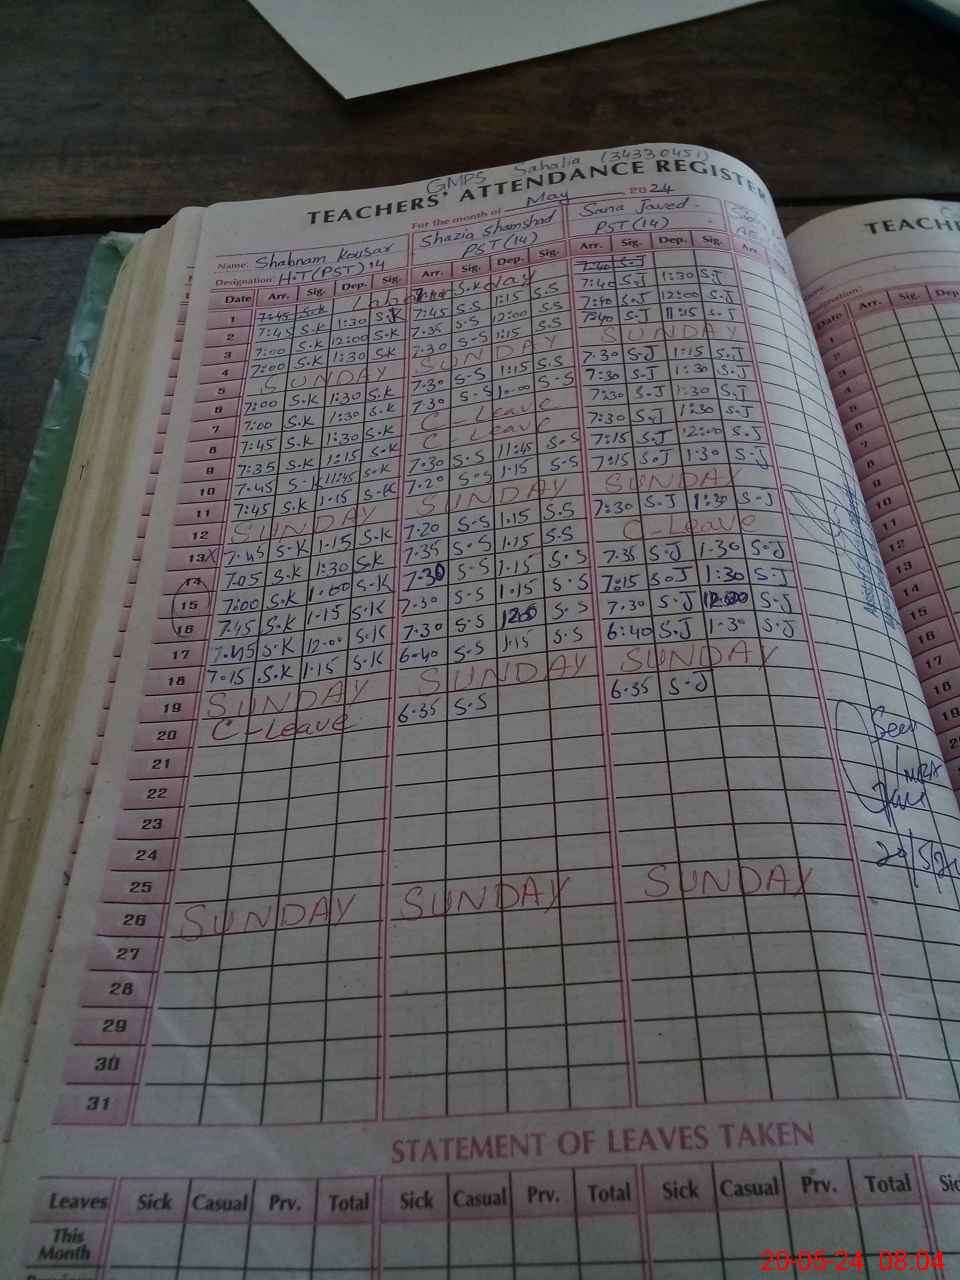 GMPS Sahalia (34330451)
TEACHERS' ATTENDANCE REGISTER
For the month of May 2024
Name: Shabnam Kousar Shazia Shamshad Sana Javed
Designation: H.T (PST) 14 PST (14) PST (14)
Date Arr. Sig. Dep. Sig. Arr. Sig. Dep. Sig. Arr. Sig. Dep. Sig. Arr.
1
2 7:45 S.K 1:30 S.K 7:45 S.S 1:15 S.S 7:40 S.J 1:30 S.J
3 7:00 S.K 12:00 S.K 7:35 S.S 12:00 S.S 7:40 S.J 12:00 S.J
4 7:00 S.K 1:30 S.K 7:30 S.S 1:15 S.S 7:40 S.J 11:15 S.J
5 SUNDAY SUNDAY SUNDAY
6 7:00 S.K 1:30 S.K 7:30 S.S 1:15 S.S 7:30 S.J 1:15 S.J
7 7:00 S.K 1:30 S.K 7:30 S.S S.S 7:30 S.J 1:30 S.J
8 7:45 S.K 1:30 S.K C-Leave 7:30 S.J 1:30 S.J
9 7:35 S.K 1:15 S.K C-Leave 7:30 S.J 1:30 S.J
10 7.45 S.K 11:45 S.K 7.30 S.S 11:45 S.S 7:15 S.J 12:00 S.J
11 7:45 S.K 1.15 S.K 7.20 S.S 1.15 S.S 7:15 S.J 1:30 S.J
12 SUNDAY SUNDAY SUNDAY
13 7.45 S.K 1.15 S.K 7.20 S.S 1.15 S.S 7:30 S.J 1:30 S.J
14 7.05 S.K 1:30 S.K 7.35 S.S 1.15 S.S C-Leave
15 7:00 S.K 1.00 S.K 7.30 S.S 1.15 S.S 7.35 S.J 1.30 S.J
16 7.45 S.K 1.15 S.K 7.30 S.S 1.15 S.S 7:15 S.J 1:30 S.J
17 7.45 S.K 12.00 S.K 7.30 S.S 1200 S.S 7.30 S.J 12.00 S.J
18 7.15 S.K 1.15 S.K 6.40 S.S 1.15 S.S 6:40 S.J 1.30 S.J
19 SUNDAY SUNDAY SUNDAY
20 C-Leave 6.35 S.S 6.35 S.J
21
22
23
24
25
26 SUNDAY SUNDAY SUNDAY
27
28
29
30
31
Seen
MEA
20/5/24
STATEMENT OF LEAVES TAKEN
Leaves Sick Casual Prv. Total Sick Casual Prv. Total Sick Casual Prv. Total
This Month
TEACH
Date Arr. Sig. Dep
1
2
3
4
5
6
7
8
9
10
11
12
13
14
15
16
17
18
19
20-05-24 08:04